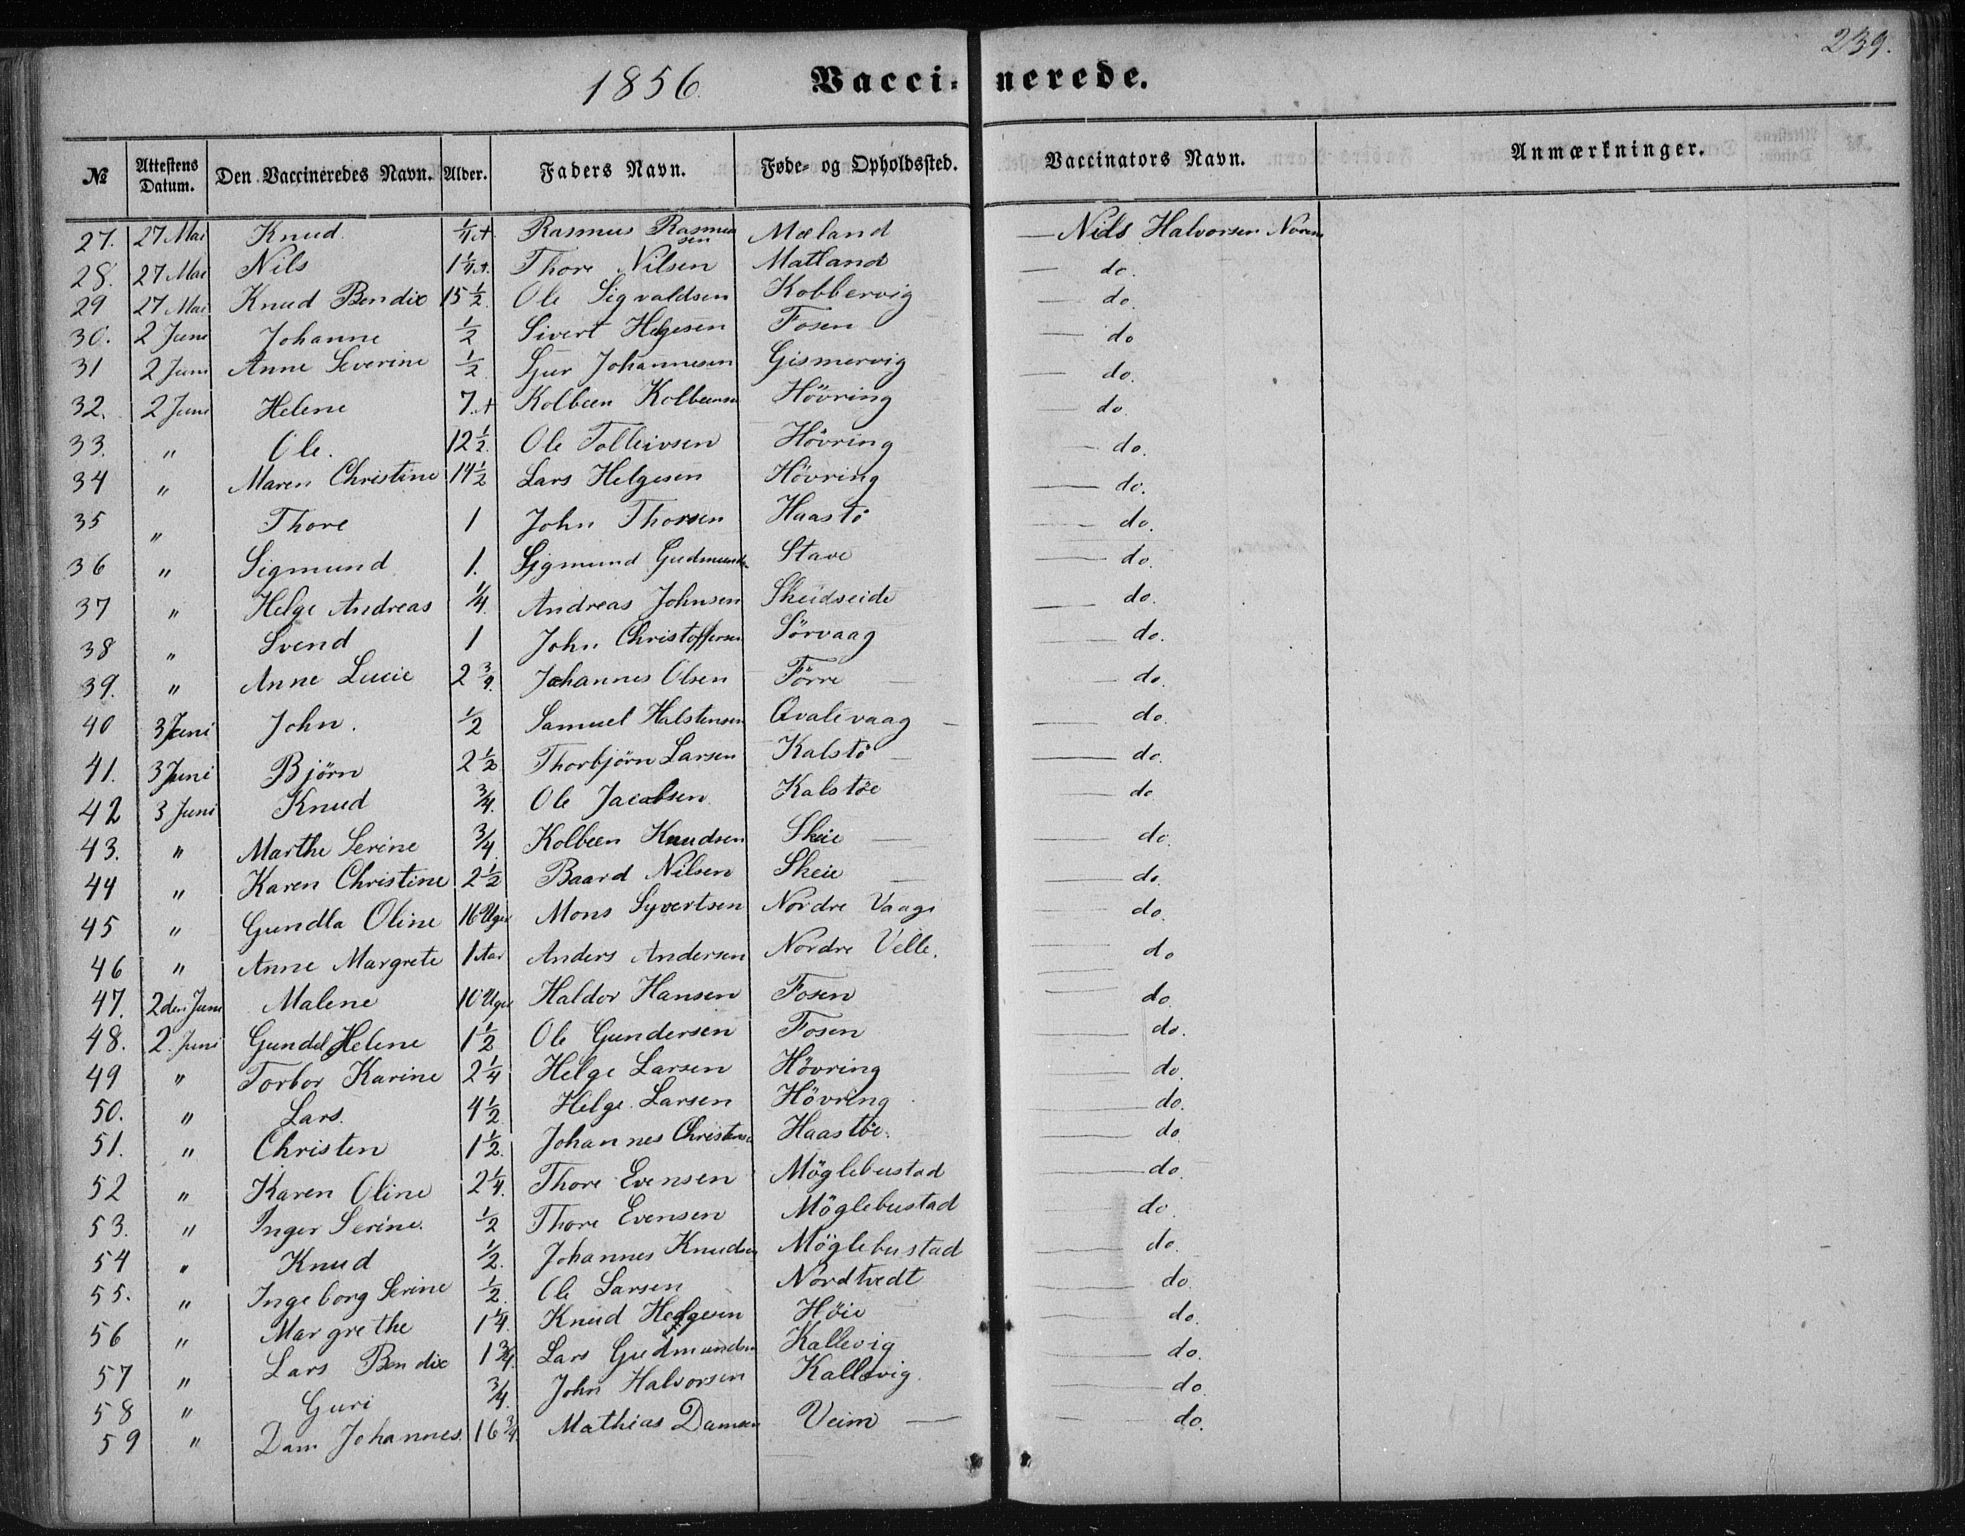 239.
1856. Vaccinerede.
№ Attestens Datum. Den Vaccineredes Navn. Alder. Faders Navn. Føde- og Opholdssted. Vaccinators Navn. Anmærkninger.
27. 27 Mai Knud 1/4 A Rasmus Rasmussen Mæland — Nils Halvorsen
28. 27 Mai Nils 1 1/4 A. Thore Nilsen Matland — do.
29 27 Mai Knud Bendix 15 1/2. Ole Sigvaldsen Kobbervig — do.
30. 2 Juni Johanne 1/2 Sivert Helgesen Fosen — do
31 2 Juni Anne Severine 1/2 Johannesen Gismervig — do.
32. 2 Juni Helene 7. A Kolbeen Kolbeensen Hövring — do.
33. " Ole. 12 1/2. Ole Tolleivsen Hövring — do.
34 " Maren Christine 14 1/2 Lars Helgesen Hövring — do.
35 " Thore 1 John Thorsen Haastö — do.
36 " Sigmund 1. Sigmund Gudmunds Stave — do.
37 " Helge Andreas 1/4. Andreas Johnsen Skeidseide — do.
38 " Svend 1 John Christoffersen Sörvaag — do.
39. " Anne Lucie 2 3/4. Johannes Olsen Förre — do.
40 3 Juni John. 1/2 Samuel Halstensen Qvalevaag — do.
41. 3 Juni Björn 2 1/2 Thorbjörn Larsen Kalstö — do.
42 3 Juni Knud 3/4. Ole Jacobsen Kalstöe — do
43. " Marthe Serine 3/4. Kolbeen Knudsen Skeie — do.
44 " Karen Christine 2 1/2 Baard Nilsen Skeie — do.
45 " Gundla Oline 16 Uger Mons Syvertsen Nordre Vaage — do.
46 " Anne Margrete 1 Aar Anders Andersen Nordre Velle. — do
47. 2den Juni Malene 10 Uger Haldor Hansen Fosen — do
48. 2. Juni Gundel Helene 1 1/2 Ole Gundersen Fosen — do.
49 " Torbor Karine 2 1/4 Helge Larsen Hövring — do.
50. " Lars. 4 1/2 Helge Larsen Hövring — do.
51. " Christen 1 1/2. Johannes Christens Haastöe. — do
52 " Karen Oline 2 1/4. Thore Evensen Möglebustad — do.
53. " Inger Serine. 1/2 Thore Evensen Möglebustad — do.
54 " Knud 1/2. Johannes Knudsen Möglebustad — do.
55. " Ingeborg Serine 1/2. Ole Larsen Nordtvedt — do.
56 " Margrethe 1 1/4. Knud Helgesen Höie — do.
57 " Lars Bendix 1 3/4. Lars Gudmundsen Kallevig — do.
58 " Guri 3/4. John Halvorsen Kallevig. — do.
59 " Dam Johannes. 16 3/4. Mathias Damsen Veim — do.